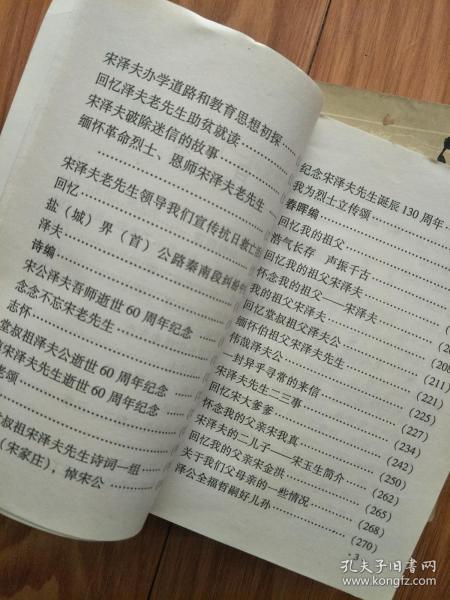 宋泽夫办学道路和教育思想初探
回忆泽夫老先生助贫就读
宋泽夫破除迷信的故事
缅怀革命烈士、恩师宋泽夫老先生
宋泽夫老先生领导我们宣传抗日救亡
回忆
盐（城）界（首）公路秦南段纠纷
泽夫
诗编
宋公泽夫吾师逝世60周年纪念
念念不忘宋老先生
志怀
堂叔祖泽夫公逝世60周年纪念
宋泽夫先生逝世60周年纪念
老颂
叔祖宋泽夫先生诗词一组
（宋家庄），悼宋公
纪念宋泽夫先生诞辰130周年
我为烈士立传颂
春晖编
回忆我的祖父
浩气长存 声振千古
回忆我的祖父宋泽夫
怀念我的祖父——宋泽夫
我的祖父宋泽夫
回忆堂叔祖父泽夫公
缅怀伯祖父宋泽夫先生 (208
伟哉泽夫公 (211)
一封异乎寻常的来信 (221)
宋泽夫先生二三事 (225)
回忆宋大爹爹 (227)
怀念我的父亲宋我真 (234)
宋泽夫的二儿子——宋玉生简介 (242)
回忆我的父亲宋金洪 (250)
关于我们父母亲的一些情况 (262)
泽公全福哲嗣好儿孙 (265)
(268)
(270)
·3
孔夫子旧书网
www.kongfz.com